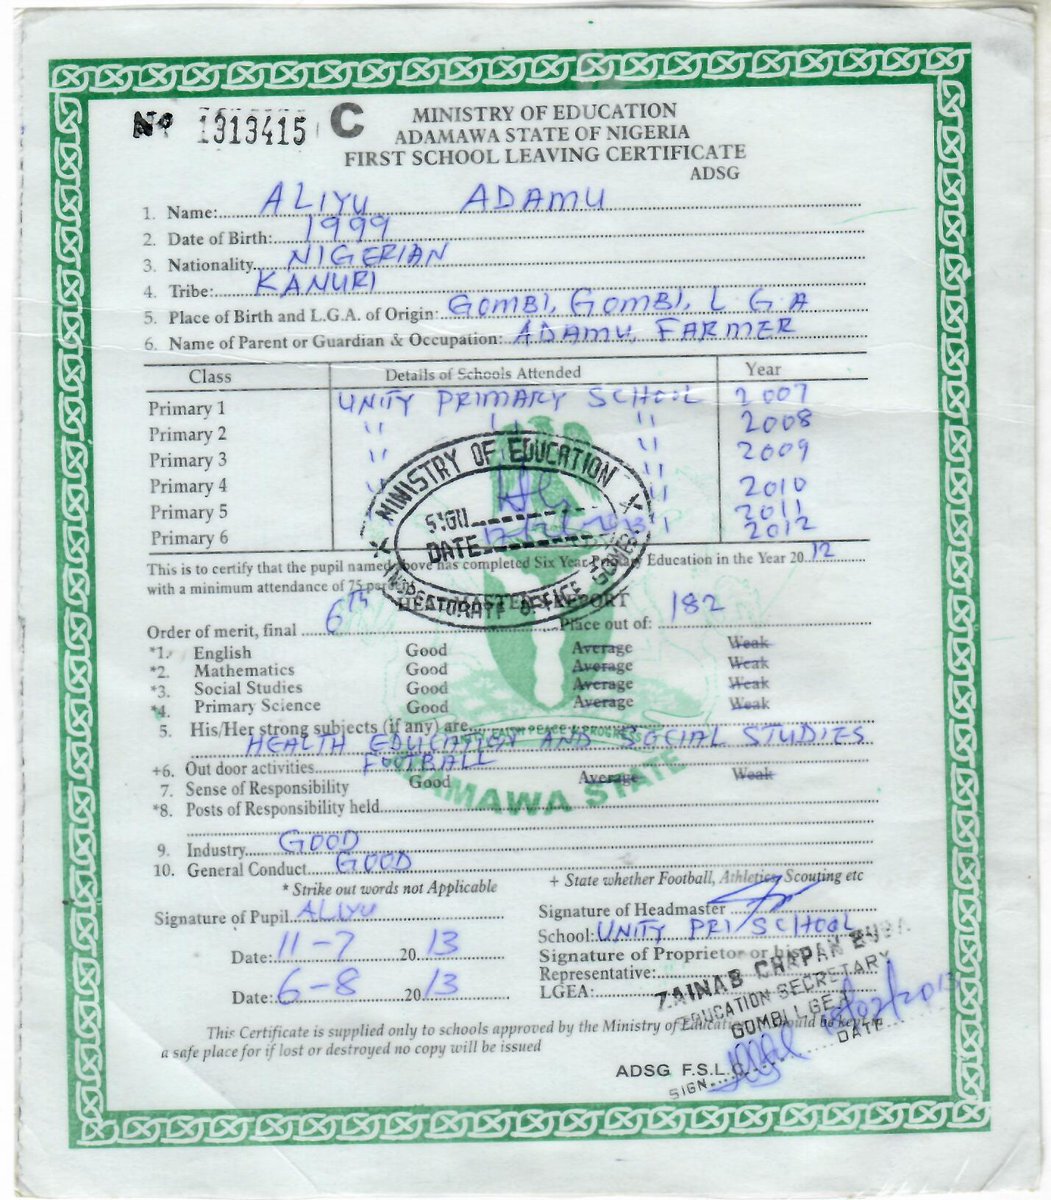 Nº 1313415 C
MINISTRY OF EDUCATION
ADAMAWA STATE OF NIGERIA
FIRST SCHOOL LEAVING CERTIFICATE
ADSG
1. Name: ALIYU ADAMU
2. Date of Birth: 1999
3. Nationality NIGERIAN
4. Tribe: KANURI
5. Place of Birth and L.G.A. of Origin: GOMBI, GOMBI, L G A
6. Name of Parent or Guardian & Occupation: ADAMU, FARMER
Class Details of Schools Attended Year
Primary 1 UNITY PRIMARY SCHOOL 2007
Primary 2 " " " 2008
Primary 3 " " 2009
Primary 4 " 2010
Primary 5 2011
Primary 6 2012
MINISTRY OF EDUCATION
SIGN
DATE
INSPECTORATE OFFICE GOMBI
This is to certify that the pupil named above has completed Six Year Primary Education in the Year 2012
with a minimum attendance of 75
HEADMASTER'S REPORT
Order of merit, final 6TH Place out of: 182
*1. English Good Average Weak
*2. Mathematics Good Average Weak
*3. Social Studies Good Average Weak
*4. Primary Science Good Average Weak
5. His/Her strong subjects (if any) are HEALTH EDUCATION AND SOCIAL STUDIES
+6. Out door activities FOOTBALL
7. Sense of Responsibility Good Average Weak
*8. Posts of Responsibility held
ADAMAWA STATE
9. Industry GOOD
10. General Conduct GOOD
* Strike out words not Applicable + State whether Football, Athletics, Scouting etc
Signature of Pupil ALIYU Signature of Headmaster
School: UNITY PRI SCHOOL
Date: 11-7 2013 Signature of Proprietor or his
Representative:
Date: 6-8 2013 LGEA:
ZAINAB CHAPAN BUBA
EDUCATION SECRETARY
GOMBI LGEA
SIGN DATE
This Certificate is supplied only to schools approved by the Ministry of Education should be kept
a safe place for if lost or destroyed no copy will be issued
ADSG F.S.L.C